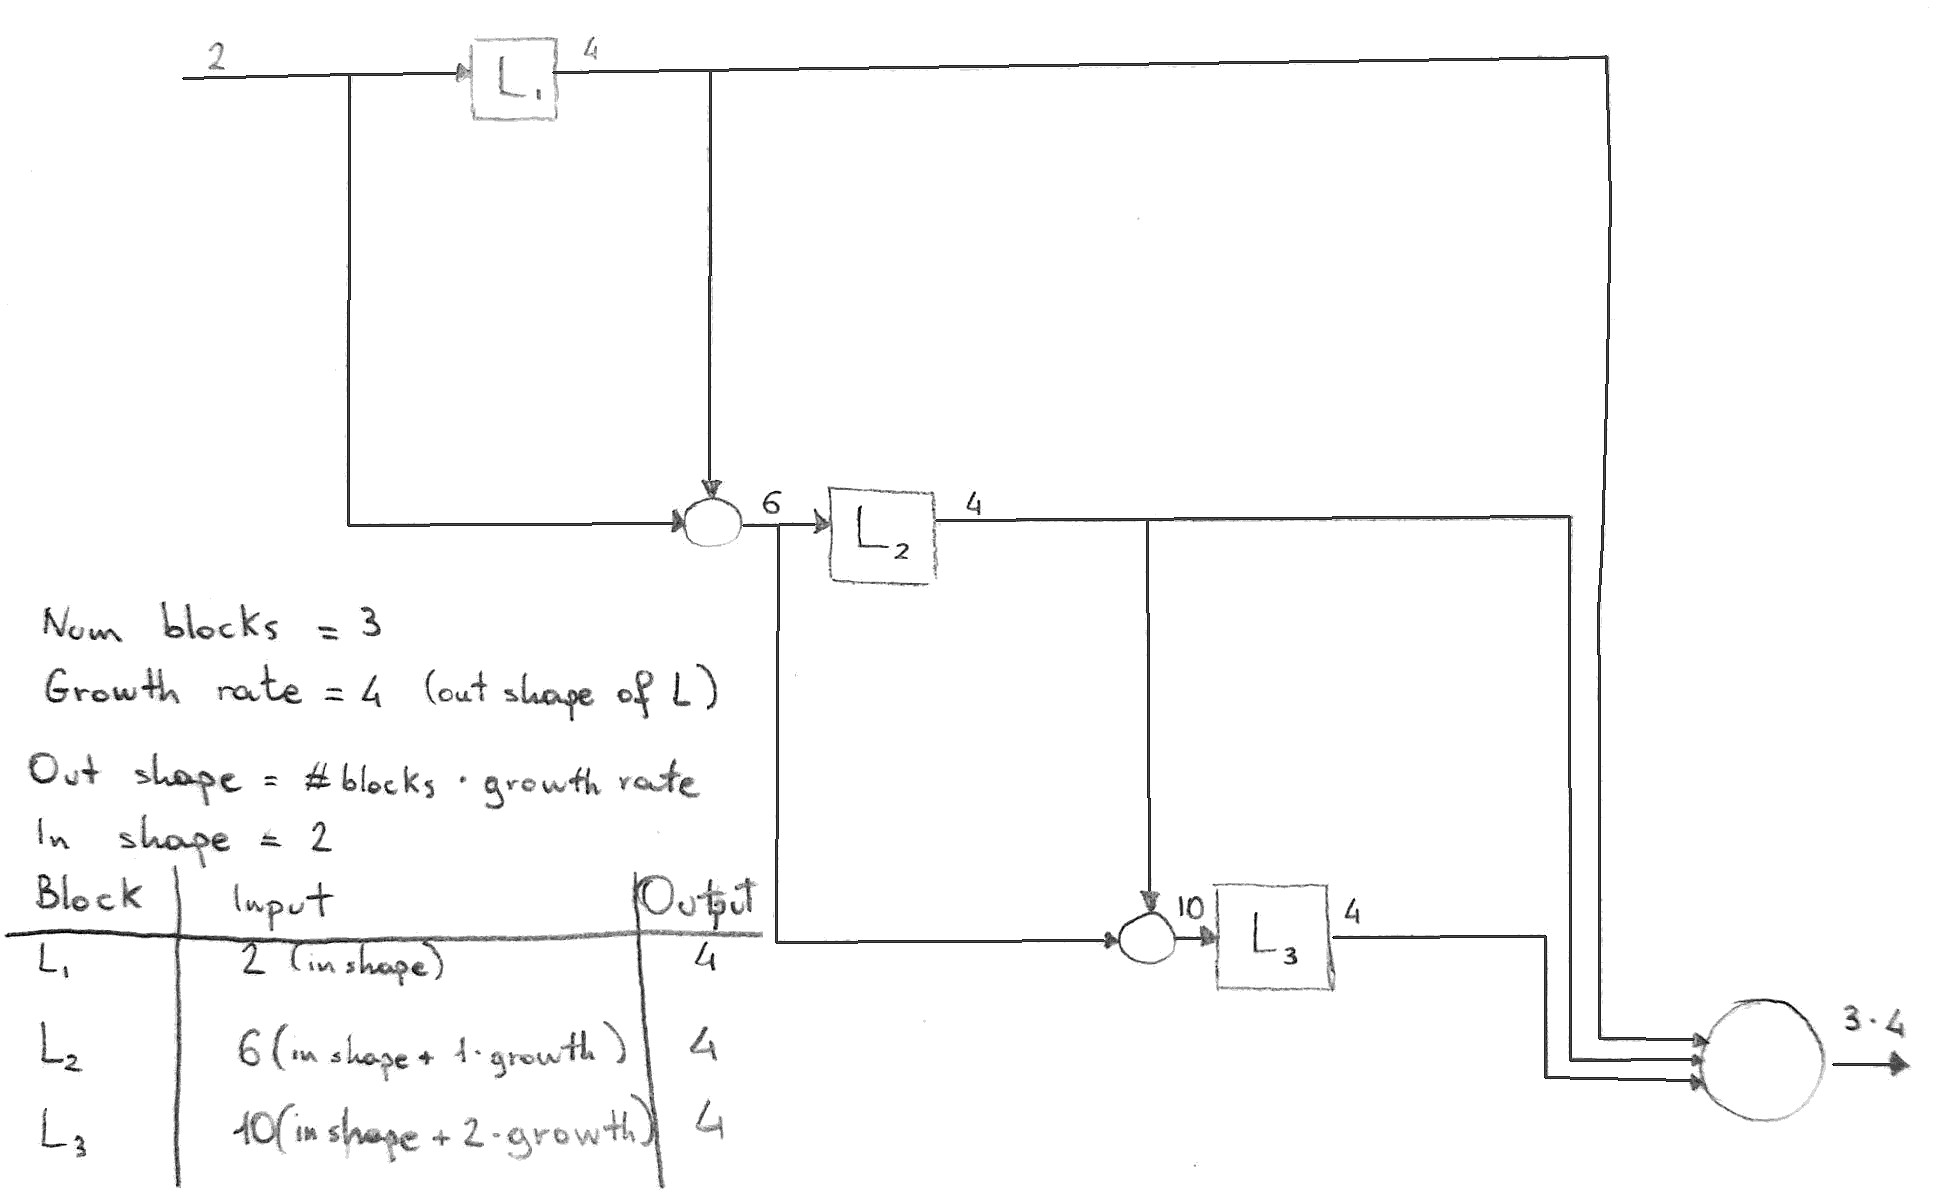 2
L₁
4
6
L₂
4
10
L₃
4
3·4
Num blocks = 3
Growth rate = 4 (out shape of L)
Out shape = # blocks · growth rate
In shape = 2
Block Input Output
L₁ 2 (in shape) 4
L₂ 6 (in shape + 1· growth) 4
L₃ 10 (in shape + 2· growth) 4